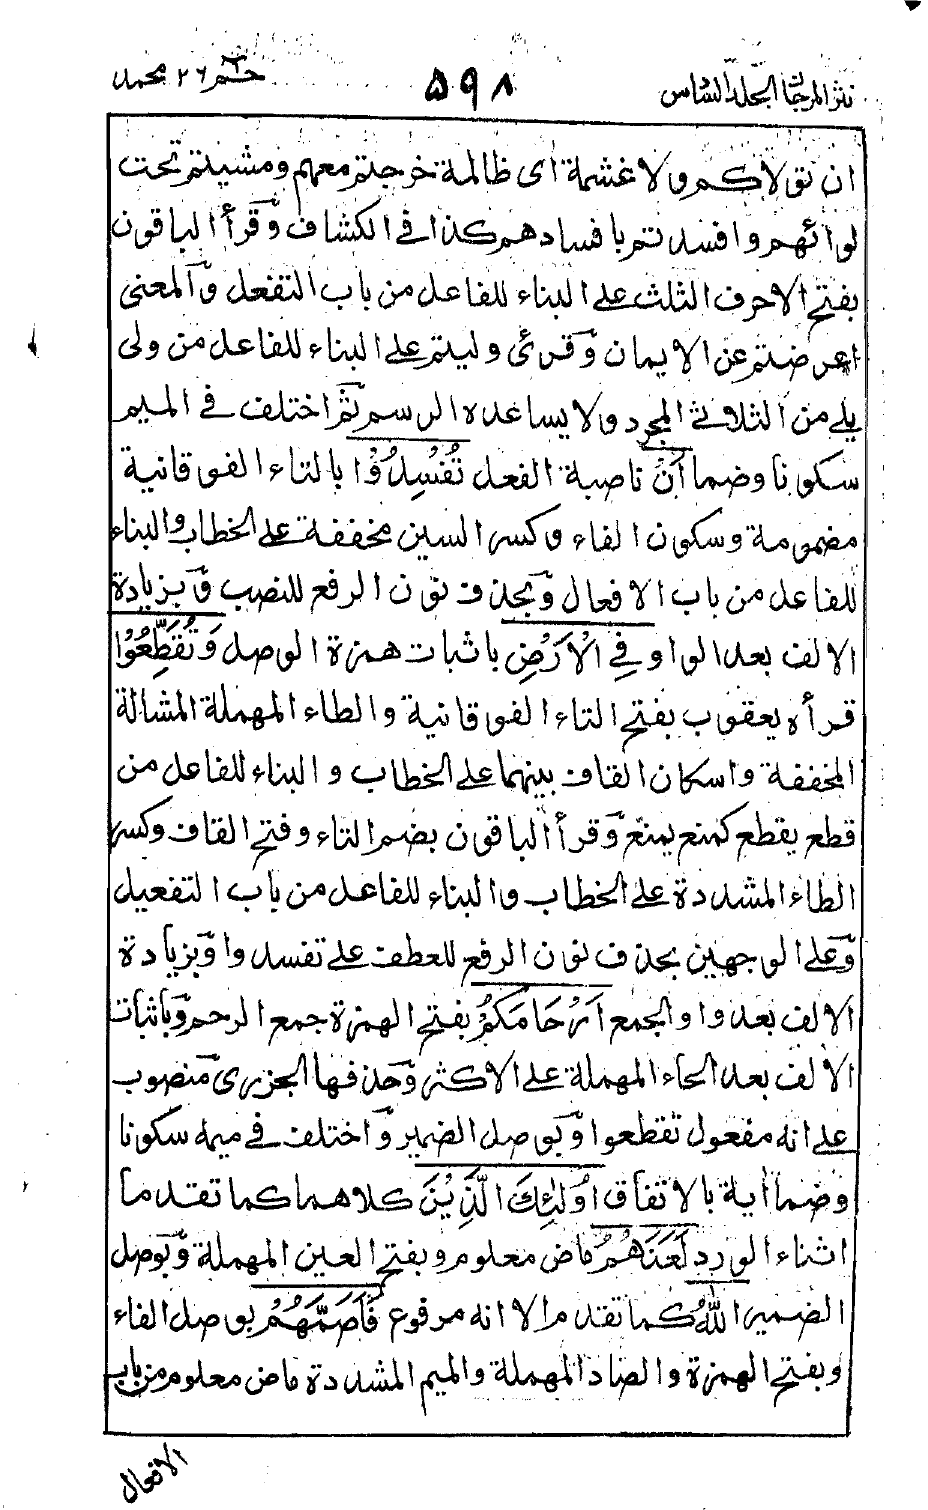 نثر المرجان المجلد السادس
٥٩٨
حم ٢٦ محمد
ان تولاكم ولاة غشمة اى ظالمة خرجتم معهم ومشيتم تحت
لوائهم وافسدتم بافسادهم كذا فى الكشاف وقرأ الباقون
بفتح الاحرف الثلث على البناء للفاعل من باب التفعل والمعنى
اعرضتم عن الايمان وقرئ وليتم على البناء للفاعل من ولى
يلى من الثلاثى المجرد ولا يساعده الرسم ثم اختلف فى الميم
سكونا وضما أَنْ ناصبة الفعل تُفْسِدُوْا بالتاء الفوقانية
مضمومة وسكون الفاء وكسر السين مخففة على الخطاب والبناء
للفاعل من باب الافعال وبحذف نون الرفع للنصب وبزيادة
الالف بعد الواو فِي الْأَرْضِ باثبات همزة الوصل وَتُقَطِّعُوْا
قرأه يعقوب بفتح التاء الفوقانية والطاء المهملة المشالة
المخففة واسكان القاف بينهما على الخطاب والبناء للفاعل من
قطع يقطع كمنع يمنع وقرأ الباقون بضم التاء وفتح القاف وكسر
الطاء المشددة على الخطاب والبناء للفاعل من باب التفعيل
وعلى الوجهين بحذف نون الرفع للعطف على تفسدوا وبزيادة
الالف بعد واو الجمع اَرْحَامَكُمْ بفتح الهمزة جمع الرحم وباثبات
الالف بعد الحاء المهملة على الاكثر وحذفها الجزرى منصوب
على انه مفعول تقطعوا وبوصل الضمير واختلف فى ميمه سكونا
وضما أية بالاتفاق اُولٰئِكَ الَّذِيْنَ كلاهما كما تقدما
اثناء الورد لَعَنَهُمُ ماض معلوم وبفتح العين المهملة وبوصل
الضمير اللّٰهُ كما تقدم الا انه مرفوع فَاَصَمَّهُمْ بوصل الفاء
وبفتح الهمزة والصاد المهملة والميم المشددة ماض معلوم من باب
الافعال